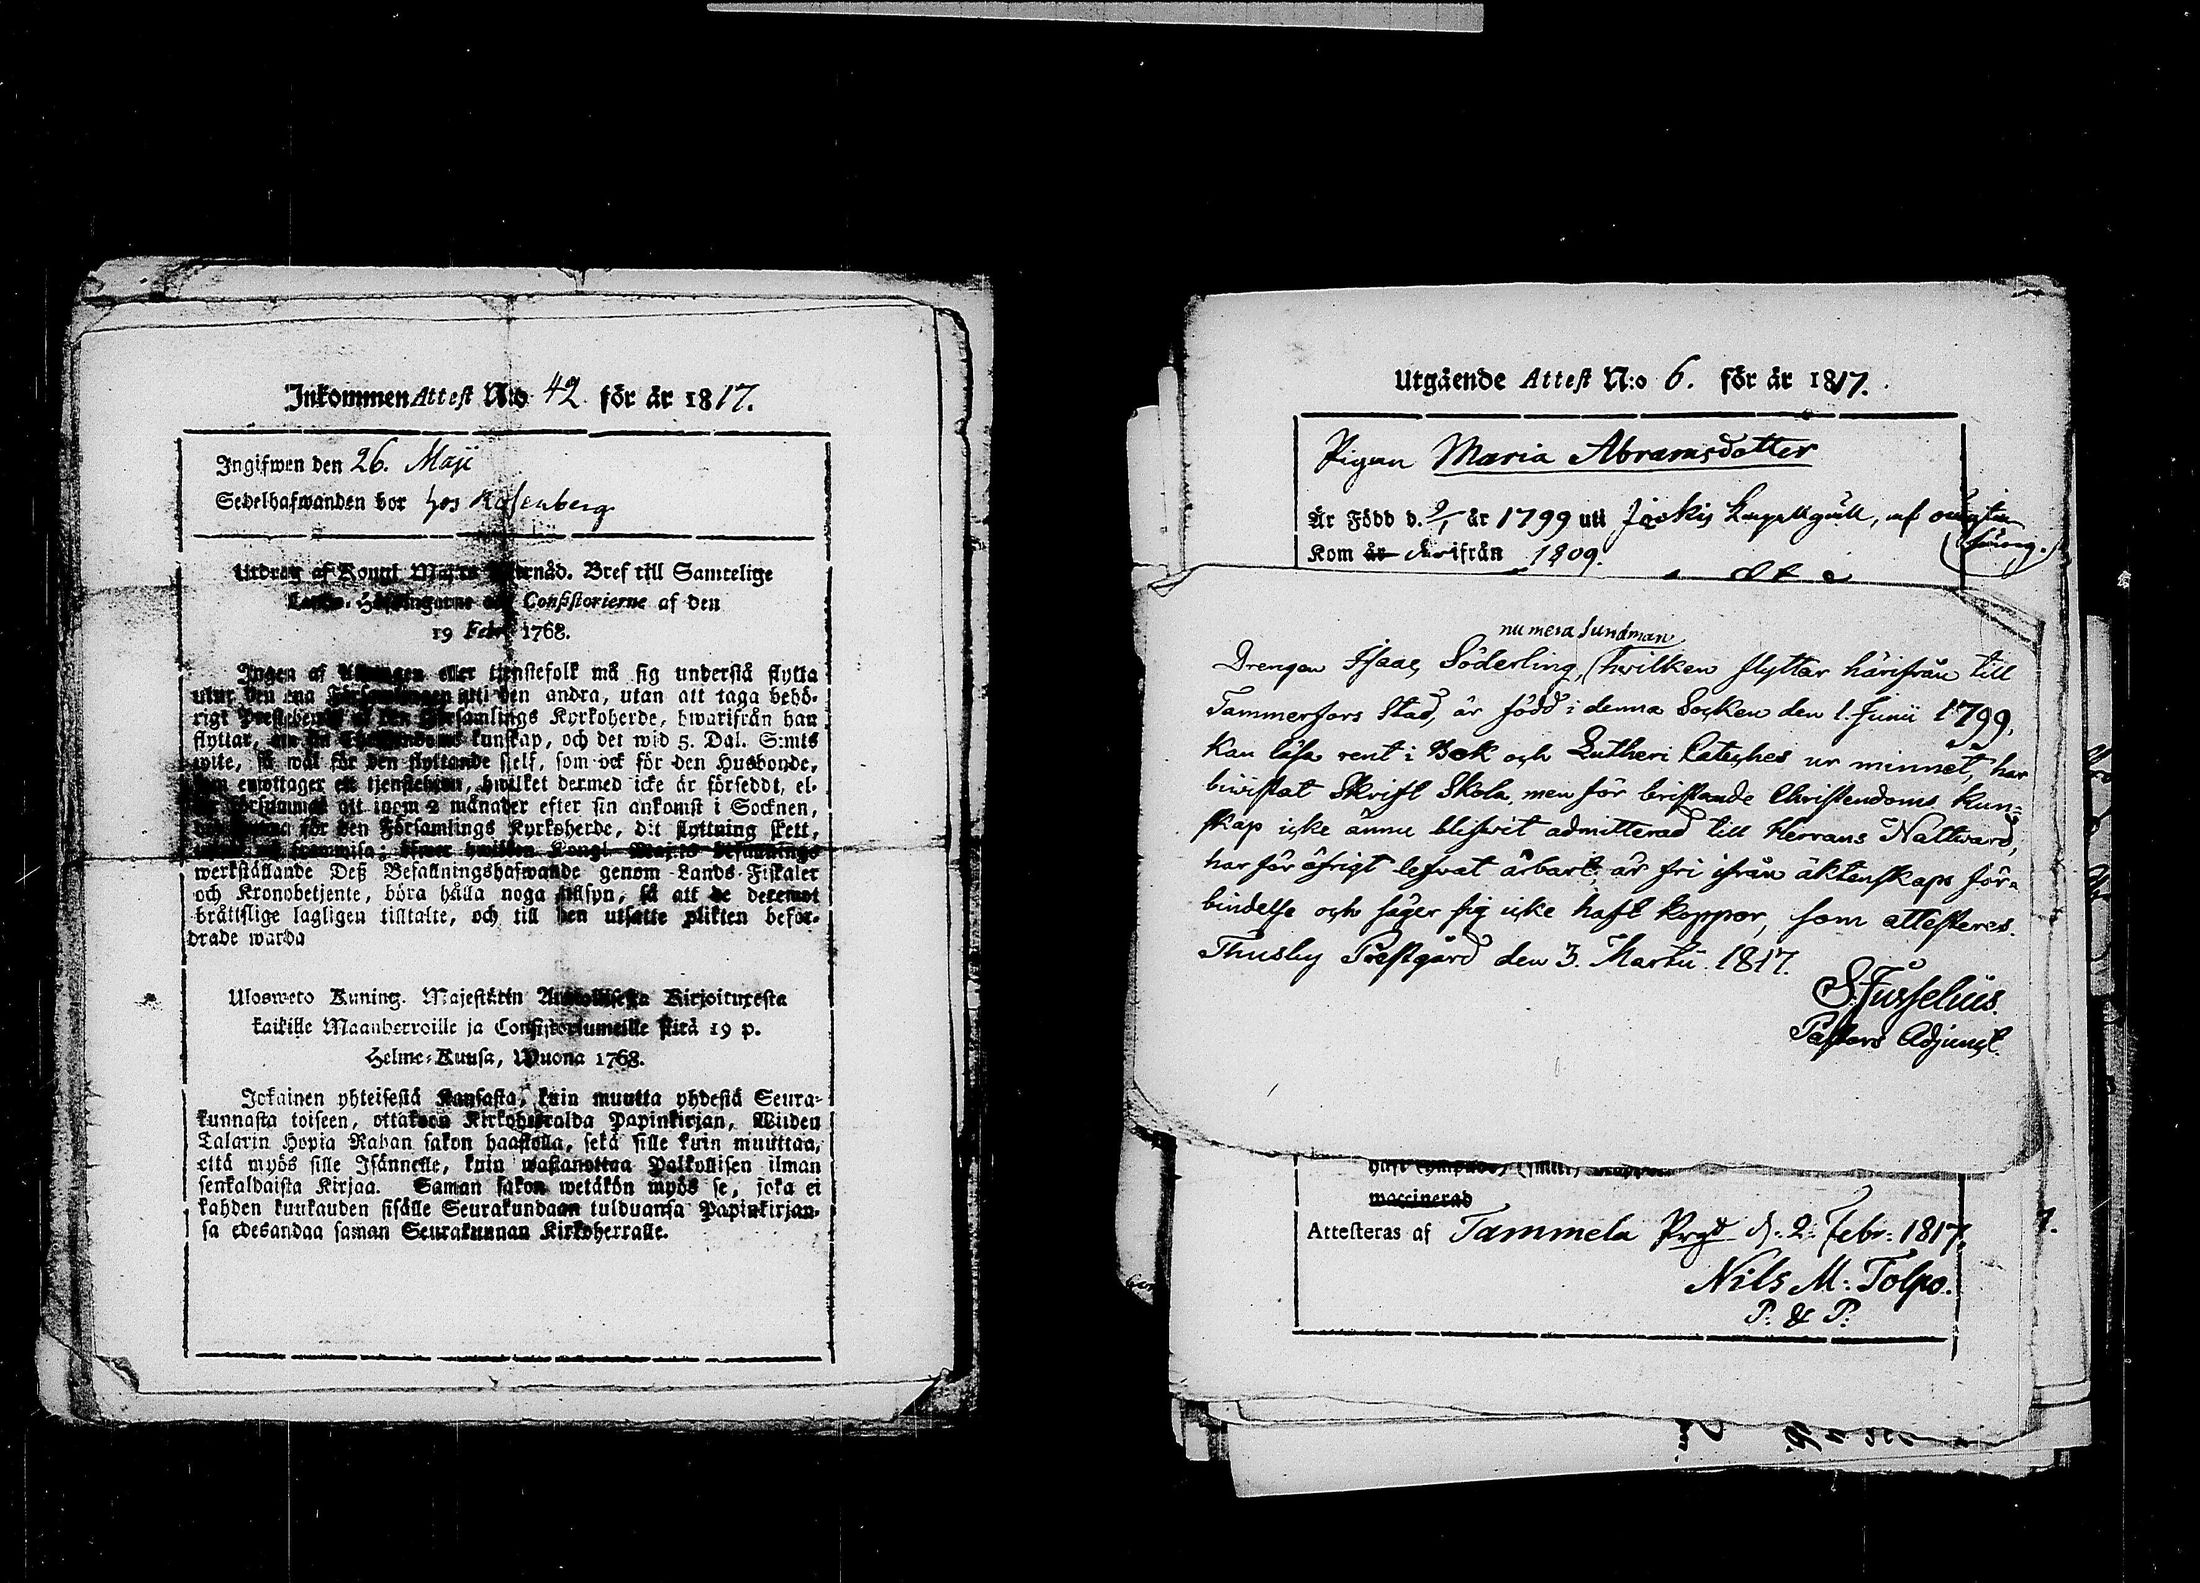 Inkommen Attest N:o 42 för år 1817.
Ingifwen den 26. Maji
Sedelhafwanden bor hos Rosenberg
Utdrag af Kongl Maj:ts Bref till Samtelige
Consistorierne af den
19 Febr 1768.
Ingen af eller tjenstefolk må sig understå flytta
utur den ena Församlingen uti den andra, utan att taga behö-
rigt af den Församlings Kyrkoherde, hwarifrån han
flyttar, kunskap, och det wid 5. Dal. S:mts
wite, så wäl för den flyttande sjelf, som ock för den Husbonde,
som emottager ett tjenstehjon, hwilket dermed icke är försedt, el-
ler försummat att inom 2 månader efter sin ankomst i Socknen,
för den Församlings Kyrkoherde, dit flyttning skett,
Kongl Maj:ts
werkställande Deß Befallningshafwande genom Lands-Fiskaler
och Kronobetjente, böra hålla noga tillsyn, så att de deremot
bråttslige lagligen tilltalte, och till den utsatte plikten befor-
drade warda
Ulosweto Kuning. Majestätin Kirjoituxesta
kaikille Maanherroille ja Consistoriumeille siitä 19 p.
Helme-Kuusa, Wuona 1768.
Jokainen yhteisestä Kansasta, kuin muutta yhdestä Seura-
kunnasta toiseen, ottakoon Kirkoherralda Papinkirjan, Wiiden
Talarin Hopia Rahan sakon haastolla, sekä sille kuin muuttaa,
että myös sille Isännelle, kuin wastanottaa Palkollisen ilman
senkaldaista Kirjaa. Saman sakon wetäkön myös se, joka ei
kahden kuukauden sisälle Seurakundaan tulduansa Papinkirjan-
sa edesandaa saman Seurakunnan Kirkoherralle.
Utgående Attest N:o 6. för år 1817.
Pigan Maria Abramsdotter
Är Född d. 9/1 år 1799 uti Jockis Capellgäll, af
Kom år derifrån 1809.
numera Sundman
Drengen Isaac Söderling, (hwilken flyttar härifrån till
Tammerfors Stad, är född i denna Socken den 1. Junii 1799,
Kan läsa rent i Bok och Lutheri Cateches ur minnet, har
biwistat Skrift Skola, men för bristande Christendoms Kun-
skap icke ännu blifwit admitterad till Herrans Nattward,
har för öfrigt lefwat ärbart, är fri ifrån äktenskaps för-
bindelse och säger sig icke haft koppor, som attesteras.
Thusby Prestgård den 3. Martii 1817.
S. Jusselius.
Pastors Adjunct.
vaccinerad
Attesteras af Tammela Prgd d. 2. Febr: 1817.
Nils M: Tolpo.
P. & P.